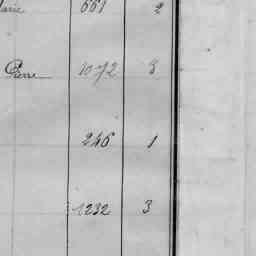 661 2
Pierre 1072 8
246 1
1232 3